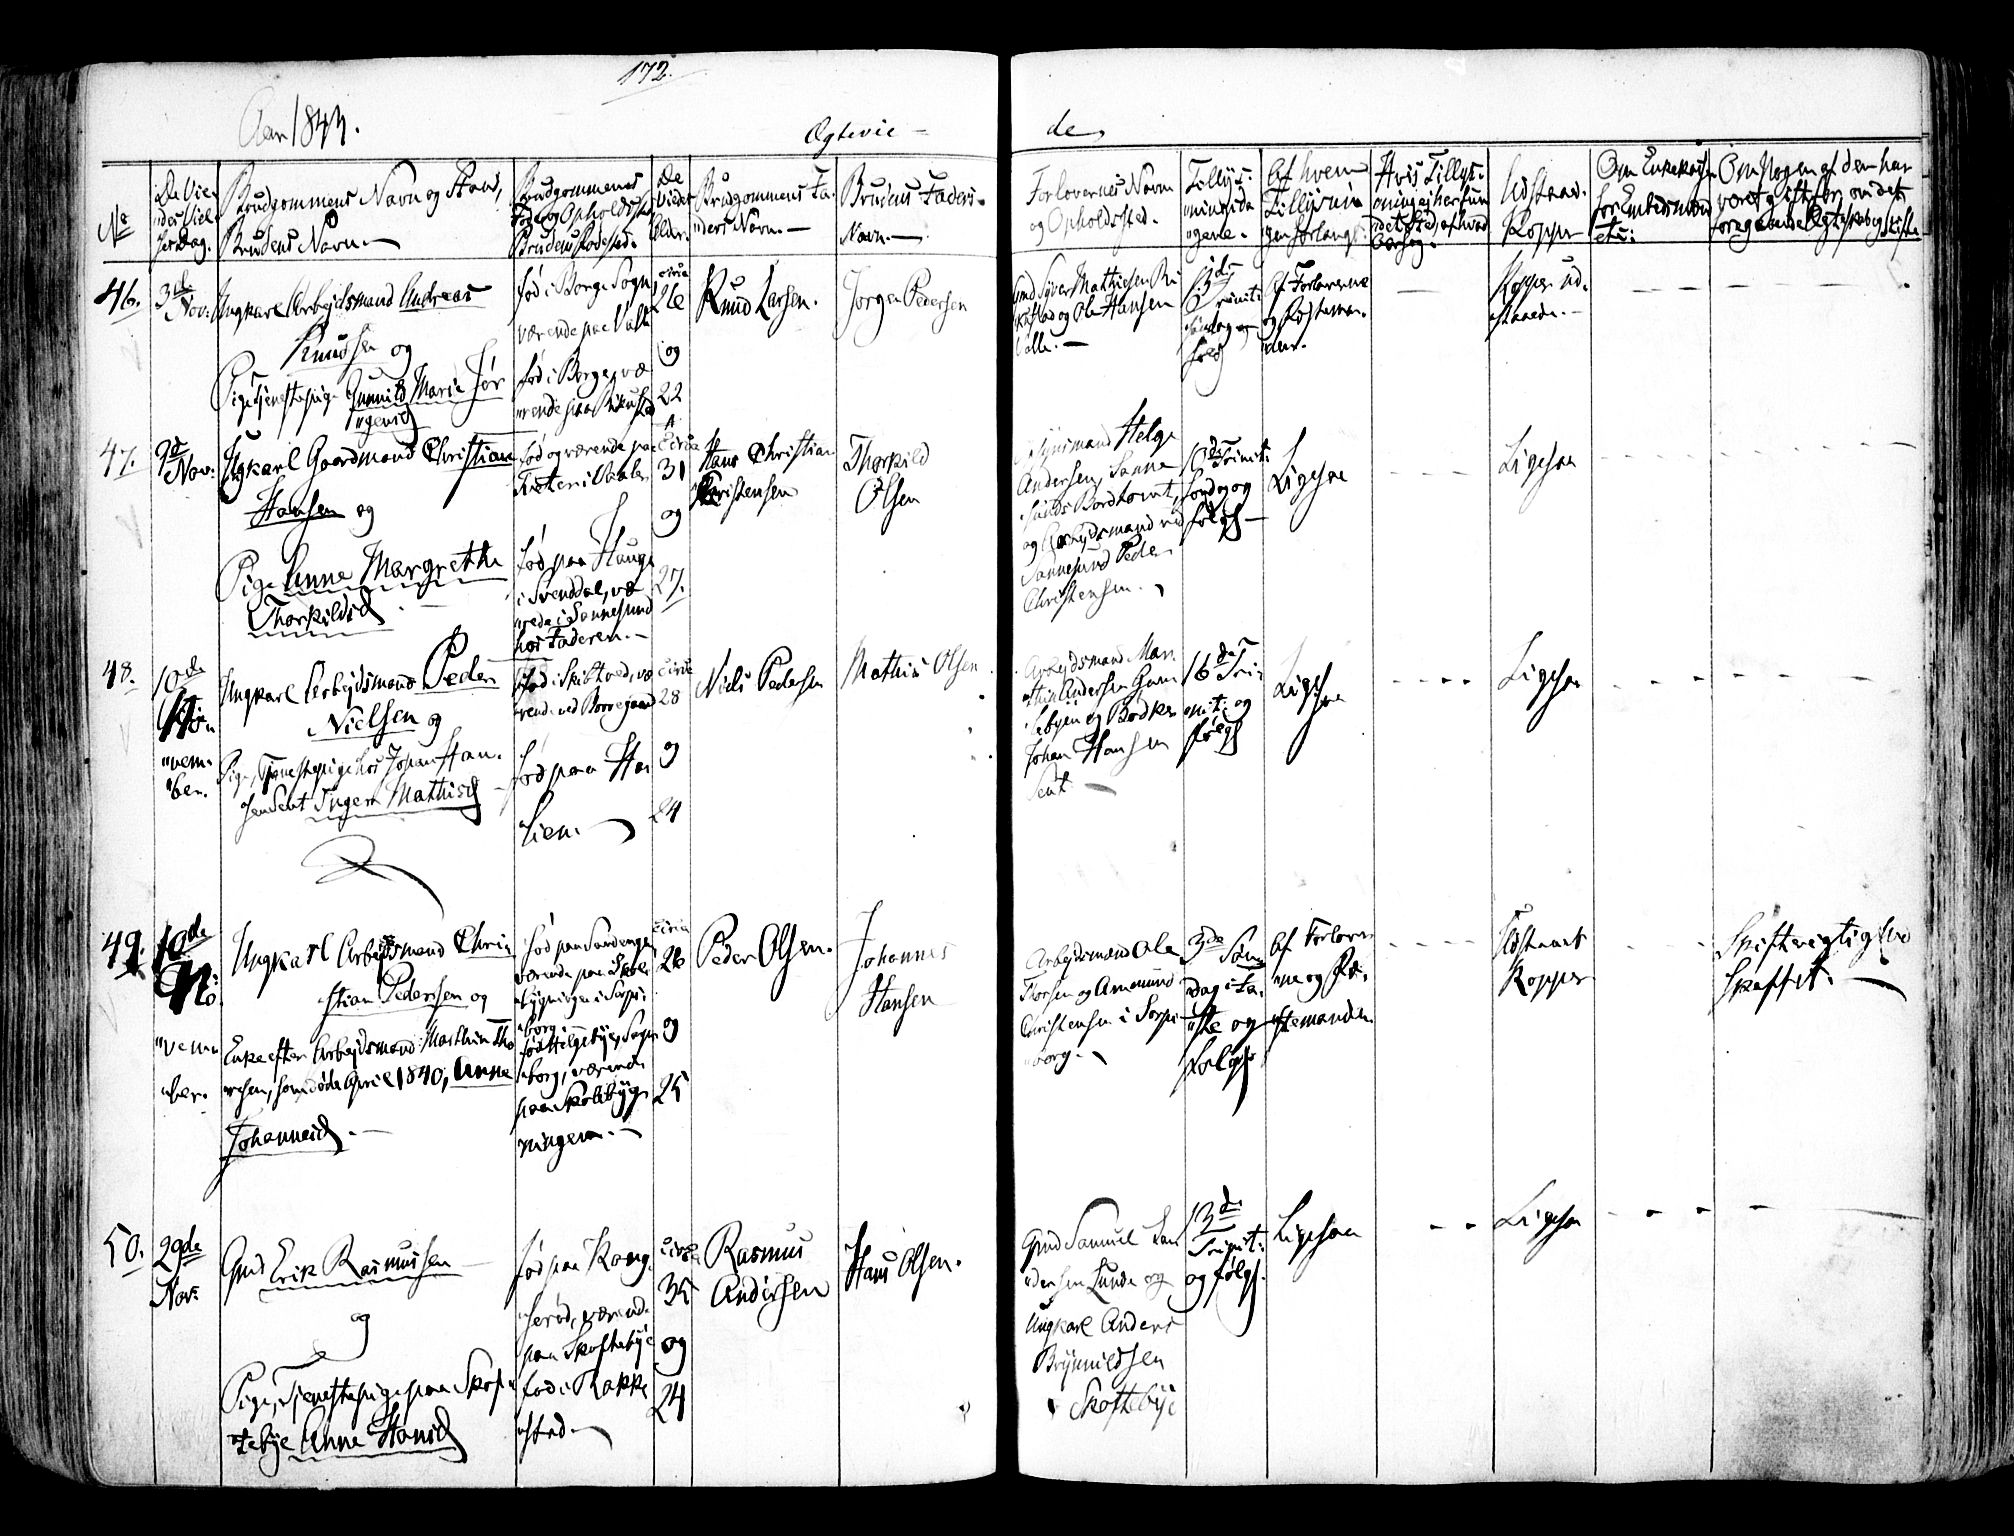 172.
Aar 1844.
Ægtevie-
de.
No
De Vie-
des Viel-
sesdag.
Brudgommens Navn og Stand,
Brudens Navn.
Brudgommens
Føde og Opholdssted
Brudens Fødested.
De
Viedes
Alder.
Brudgommens Fa-
ders Navn.
Brudens Faders
Navn.
Forlovernes Navn
og Opholdssted.
Tillys-
ningsda-
gene.
Af hvem
Tillysnin-
gen forlangt.
Hvis Tillys-
Udstaaet
Kopper
Om Enkekasse
for Embedsmænd
etc:
Om Nogen af dem har
været gift før, om det
foregaaende Ægteskab og Skifte
46.
3de
Nov:
Ungkarl Arbejdsmand Andreas
Knudsen og
Pige Tjenestepige Gunnild Marie Jør
gensd
fød i Borge Sogn,
værende paa Valle
fød i Borge, væ
rende paa
circa
26
og
22
Knud Larsen.
Jørgen Pedersen
Gmd Syver Mathiesen
og Ole Hansen
Valle.
Trinit:
Søndag og
følg
Af Forloverne
og Fæsteman-
den.
Kopper ud-
staaede.
47.
9de
Nov:
Ungkarl Gaardmand Christian
Hansen og
Pige Anne Margrethe
Thorkildsd
fød og værende paa
i Vaaler
fød paa Hauge
i Svenddal, væ
rende i Sannesund
hos Faderen.
circa
31
og
27.
Hans Christian
Christensen
Thorkild
Olsen
Helge
Andersen, Sanne
sunds Bordtomt,
og Arbejdsmand ved
Sannesund Peder
Christensen.
Trinit:
Søndag og
følg
Ligesaa
Ligesaa
48.
10de
No-
vem-
ber.
Ungkarl Arbejdsmand Peder
Nielsen og
Pige, Tjenestepige hos Johan Han-
sen Sent Inger Mathisd
fød i Skiftved, væ
rende ved Borregaard
fød paa Ha
lien.
circa
28
og
24
Niels Pedersen
Mathis Olsen
Arbejdsmand Mar-
thin Andersen Gam
lebyen og Bødker
Johan Hansen
Sent
16de Tri-
nit: og
følg
Ligesaa
Ligesaa
49.
10de
No-
vem-
ber.
Ungkarl Arbejdsmand Chri-
stian Pedersen og
Enke efter Arbejdsmand Marthin Tho
resen, som døde April 1840, Anne
Johannesd.
fød paa Sandenga
værende paa Skole
bygningen i Sarps-
borg
fød Helgebye, Sogn
borg, værende
paa Skolebyg-
ningen.
circa
26
og
25
Peder Olsen.
Johannes
Hansen
Arbejdsmand Ole
Thorsen og Amund
Christensen i Sarps-
borg.
3de Søn-
dag i Fa-
ste og
følg
Af Forlover-
ne og Fæ-
stemanden.
Udstaaet
Kopper
Skiftevigtighed
skaffet.
50.
29de
Nov:
Gmd Erik Rasmussen
og
Pige, Tjenestepige paa Skof-
tebye Anne Hansd
fød paa Kong-
serød, værend-
paa Skoftebye
fød i Rakke
stad.
circa
35
og
24
Rasmus
Andersen
Hans Olsen.
Gmd Samuel Lau
dersen Lunde og
Ungkarl Anders
Brynnildsen
Skoftebye
13de
Trinit:
og følg.
Ligesaa
Ligesaa